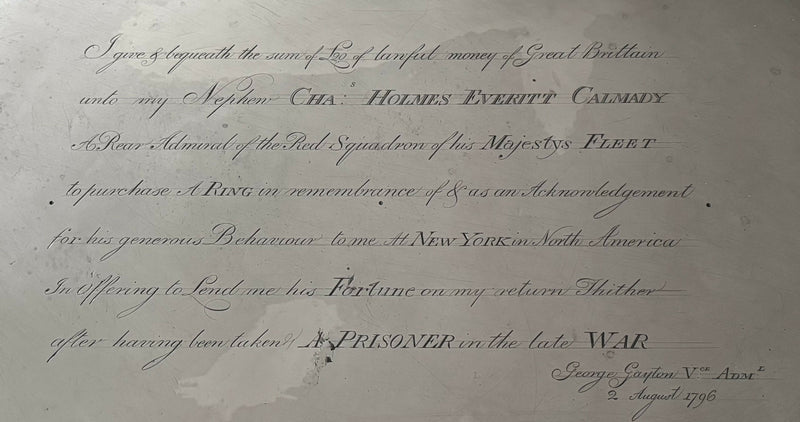 I give & bequeath the sum of £20 of lawful money of Great Brittain
unto my Nephew CHA:ˢ HOLMES EVERITT CALMADY
A Rear Admiral of the Red Squadron of his Majestys FLEET
to purchase A RING in remembrance of & as an Acknowledgement
for his generous Behaviour to me At NEW YORK in North America
In Offering to Lend me his Fortune on my return Thither
after having been taken A PRISONER in the late WAR
George Gayton Vᶜᴱ ADMᴸ
2 August 1796